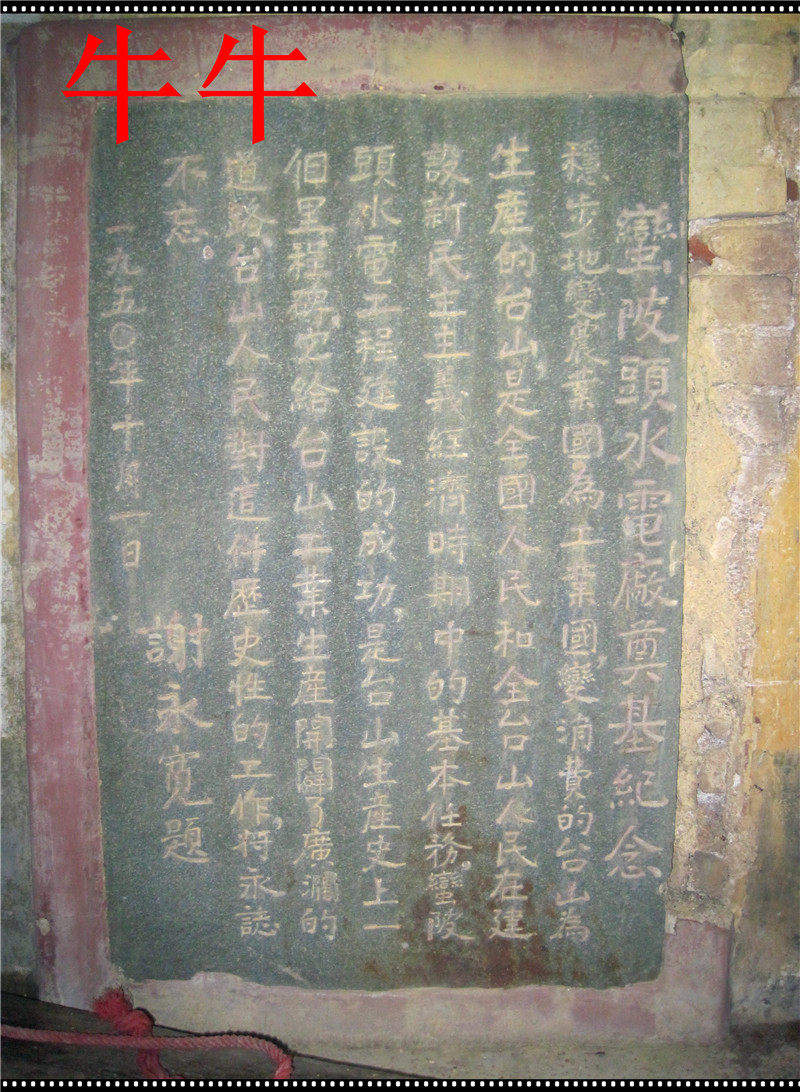 牛牛
蛮陂頭水電廠奠基紀念
穩步地變農業國爲工業國,變消費的台山爲
生產的台山,是全國人民和全台山人民在建
設新民主主義經濟時期中的基本任務。蛮陂
頭水電工程建設的成功,是台山生產史上一
個里程碑,它給台山工業生產開闢了廣濶的
道路,台山人民對這件歷史性的工作,將永誌
不忘。
一九五〇年十月一日
謝永寬題